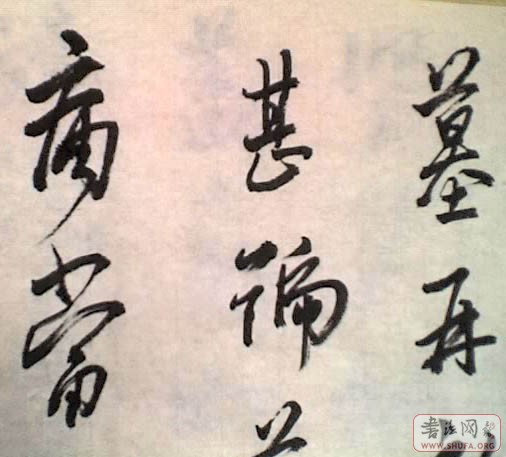 墓再
甚號
痛當
書法网
WWW.SHUFA.ORG